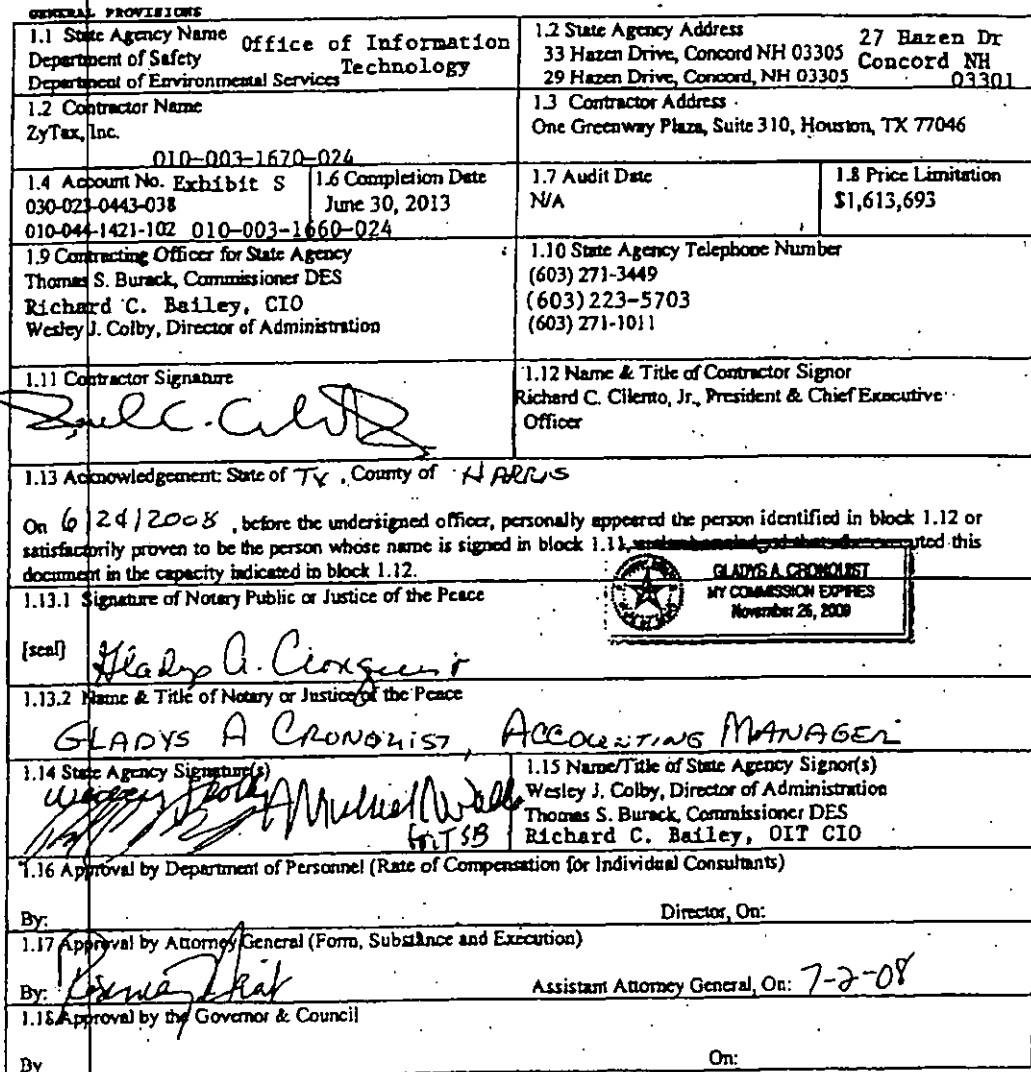 GENERAL PROVISIONS
1.1 State Agency Name Office of Information
Department of Safety Technology
Department of Environmental Services
1.2 State Agency Address
33 Hazen Drive, Concord NH 03305 27 Hazen Dr
29 Hazen Drive, Concord, NH 03305 Concord NH
03301
1.2 Contractor Name
ZyTax, Inc.
010-003-1670-024
1.3 Contractor Address
One Greenway Plaza, Suite 310, Houston, TX 77046
1.4 Account No. Exhibit S
030-023-0443-038
010-044-1421-102 010-003-1660-024
1.6 Completion Date
June 30, 2013
1.7 Audit Date
N/A
1.8 Price Limitation
$1,613,693
1.9 Contracting Officer for State Agency
Thomas S. Burack, Commissioner DES
Richard C. Bailey, CIO
Wesley J. Colby, Director of Administration
1.10 State Agency Telephone Number
(603) 271-3449
(603) 223-5703
(603) 271-1011
1.11 Contractor Signature
1.12 Name & Title of Contractor Signor
Richard C. Cilento, Jr., President & Chief Executive
Officer
1.13 Acknowledgement: State of TX, County of HARRIS
On 6/24/2008, before the undersigned officer, personally appeared the person identified in block 1.12 or
satisfactorily proven to be the person whose name is signed in block 1.11, executed this
document in the capacity indicated in block 1.12.
GLADYS A. CRONQUIST
MY COMMISSION EXPIRES
November 26, 2009
1.13.1 Signature of Notary Public or Justice of the Peace
[seal] Gladys A. Cronquist
1.13.2 Name & Title of Notary or Justice of the Peace
GLADYS A CRONQUIST, ACCOUNTING MANAGER
1.14 State Agency Signature(s)
for TSB
1.15 Name/Title of State Agency Signor(s)
Wesley J. Colby, Director of Administration
Thomas S. Burack, Commissioner DES
Richard C. Bailey, OIT CIO
1.16 Approval by Department of Personnel (Rate of Compensation for Individual Consultants)
By: Director, On:
1.17 Approval by Attorney General (Form, Substance and Execution)
By: Assistant Attorney General, On: 7-2-08
1.18 Approval by the Governor & Council
By On: